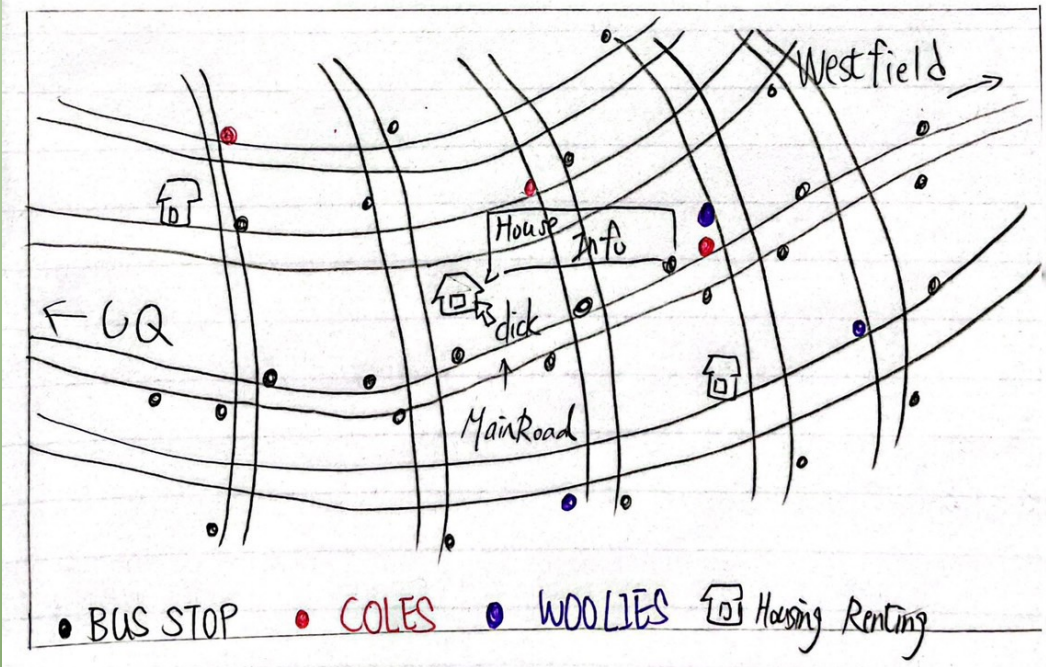 Westfield →
House
Info
← UQ
click
↑
MainRoad
BUS STOP
COLES
WOOLIES
Housing Renting